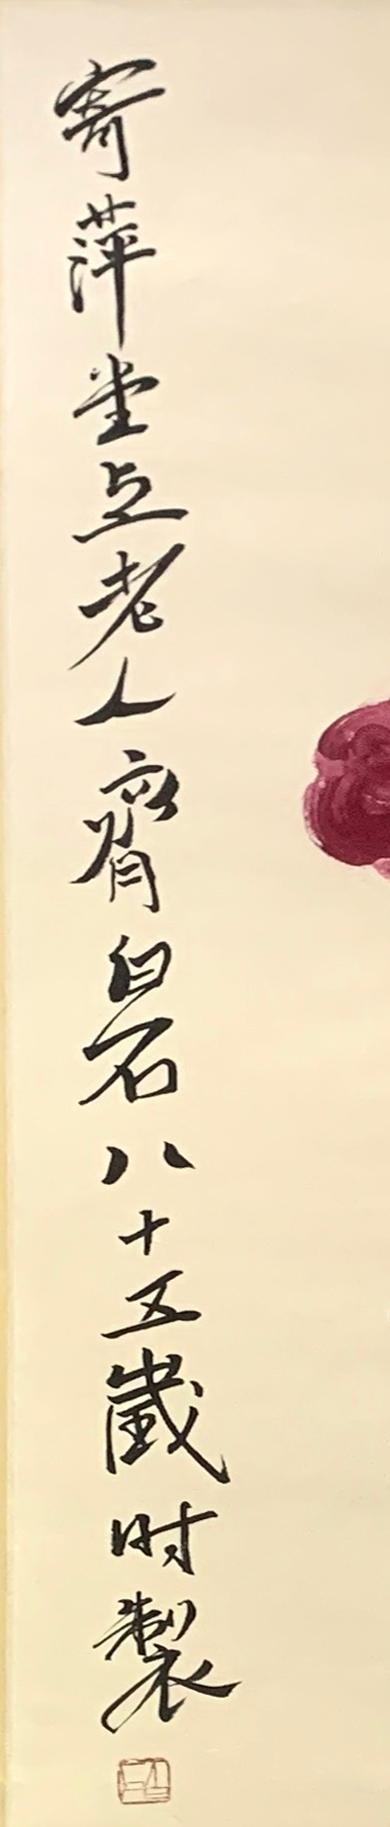 寄萍堂上老人齊白石八十五歲时製